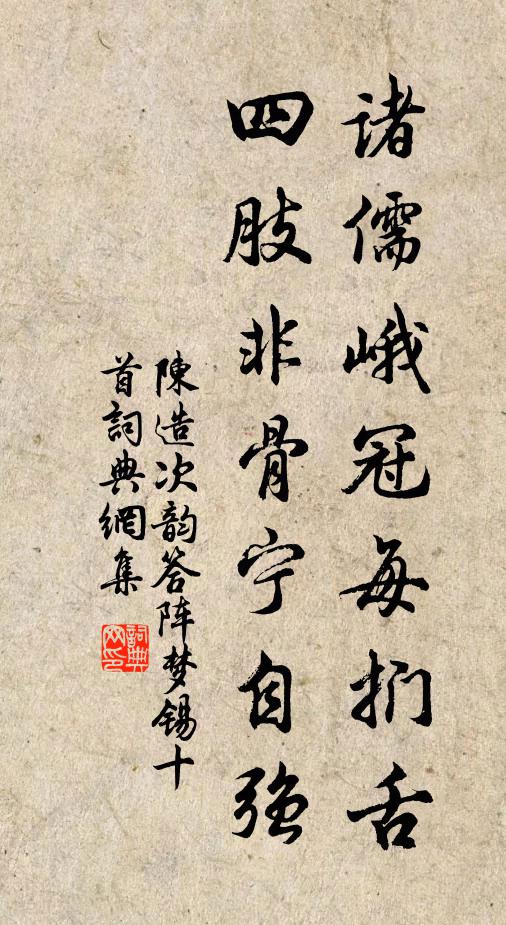 诸儒峨冠每扪舌
四肢非骨宁自强
陳造次韵答阵梦锡十
首詞典網集
詞典网印